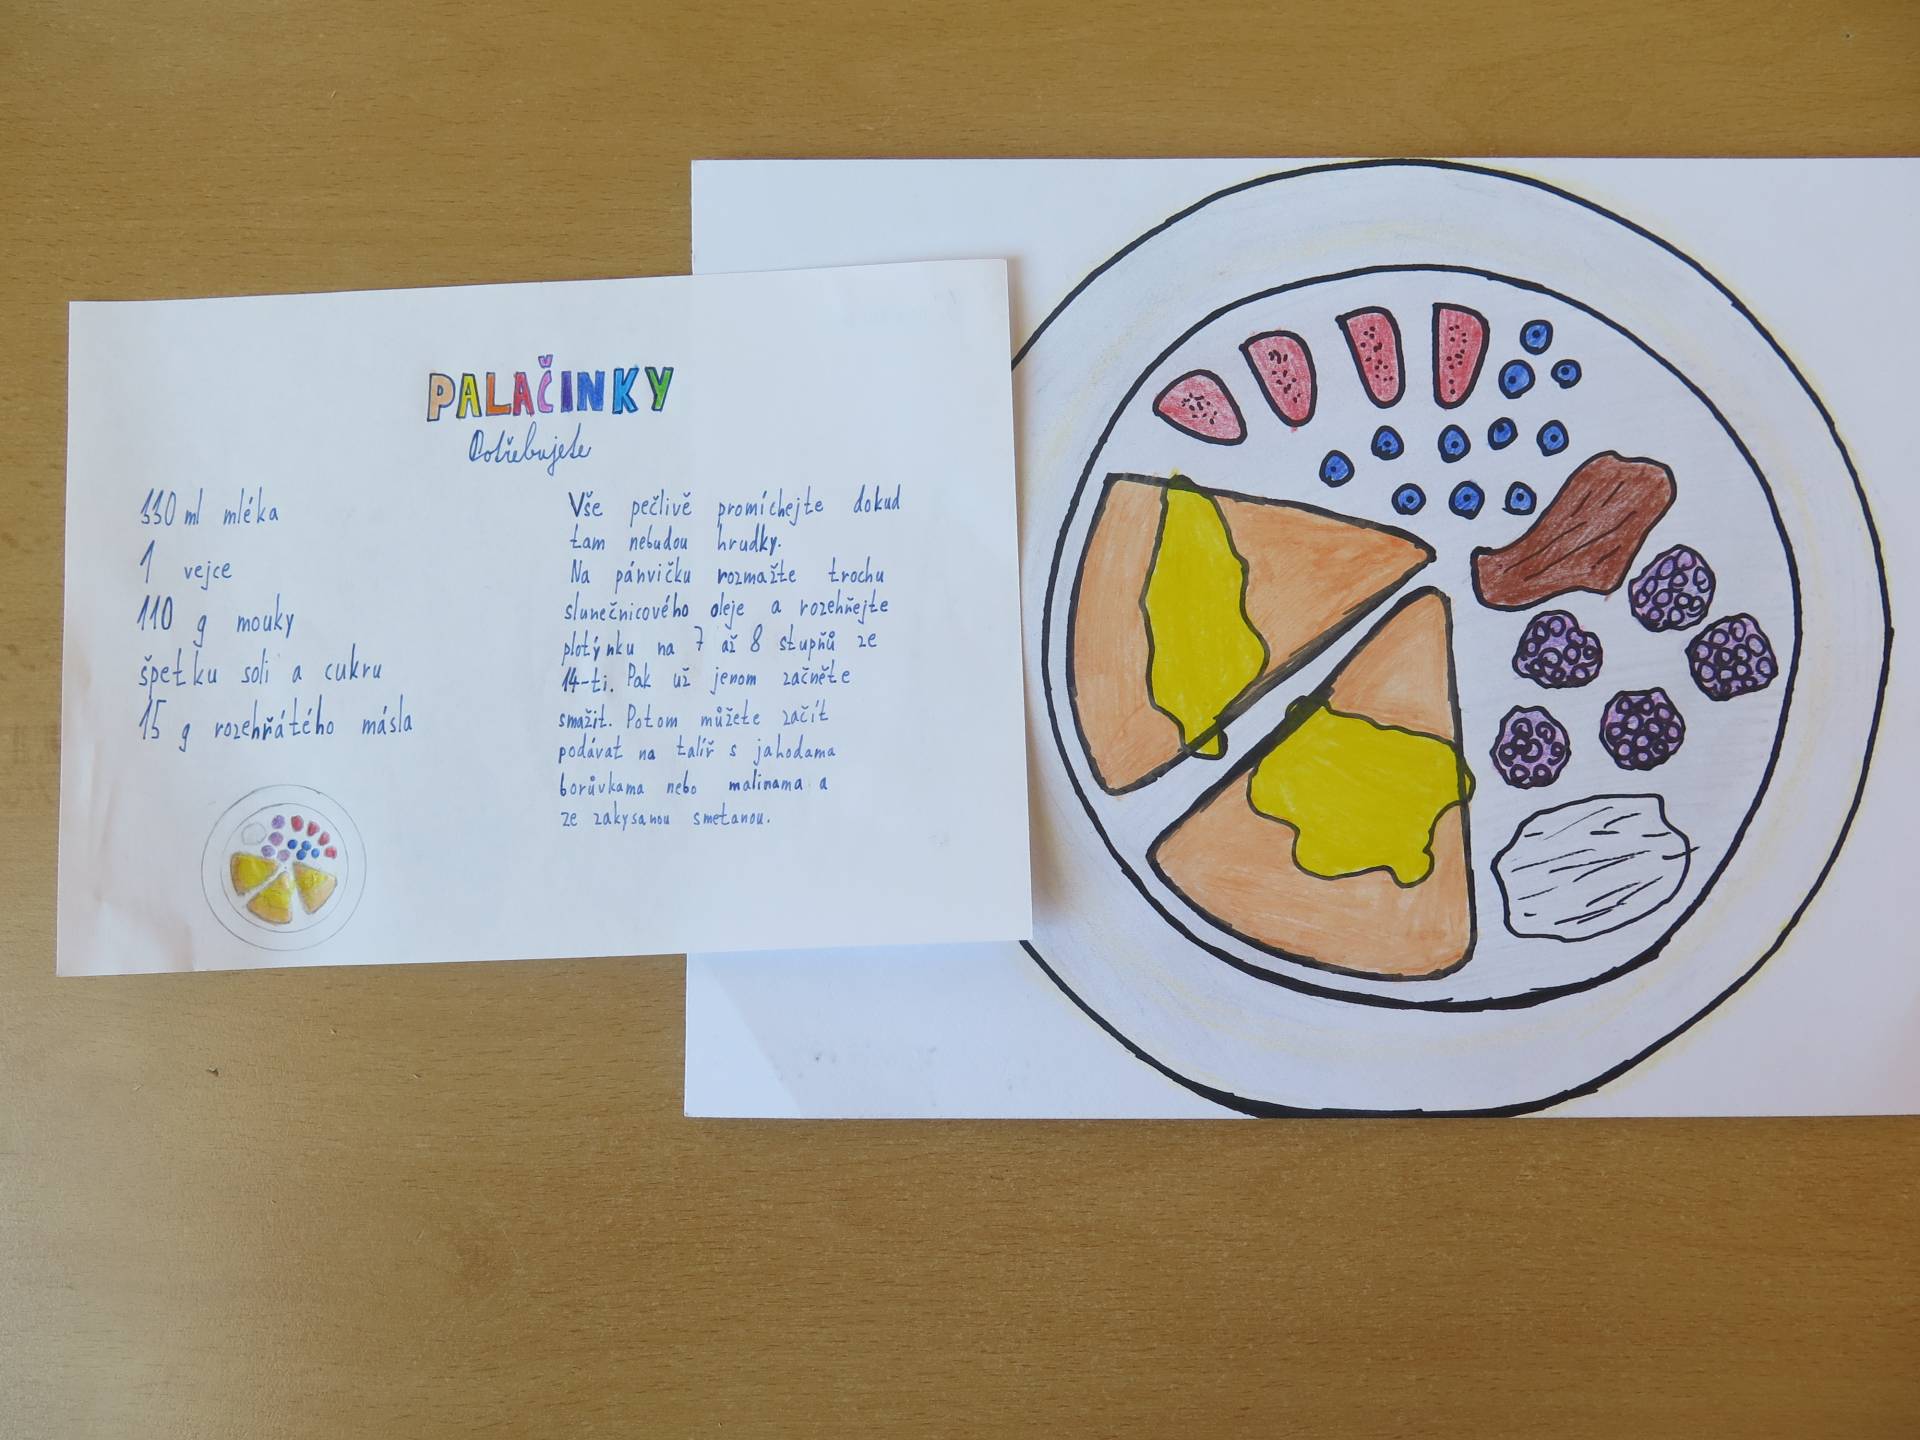 PALAČINKY
Potřebujete
330 ml mléka
1 vejce
110 g mouky
špetku soli a cukru
15 g rozehřátého másla
Vše pečlivě promíchejte dokud
tam nebudou hrudky.
Na pánvičku rozmažte trochu
slunečnicového oleje a rozehřejte
plotýnku na 7 až 8 stupňů ze
14-ti. Pak už jenom začněte
smažit. Potom můžete začít
podávat na talíř s jahodama
borůvkama nebo malinama a
ze zakysanou smetanou.